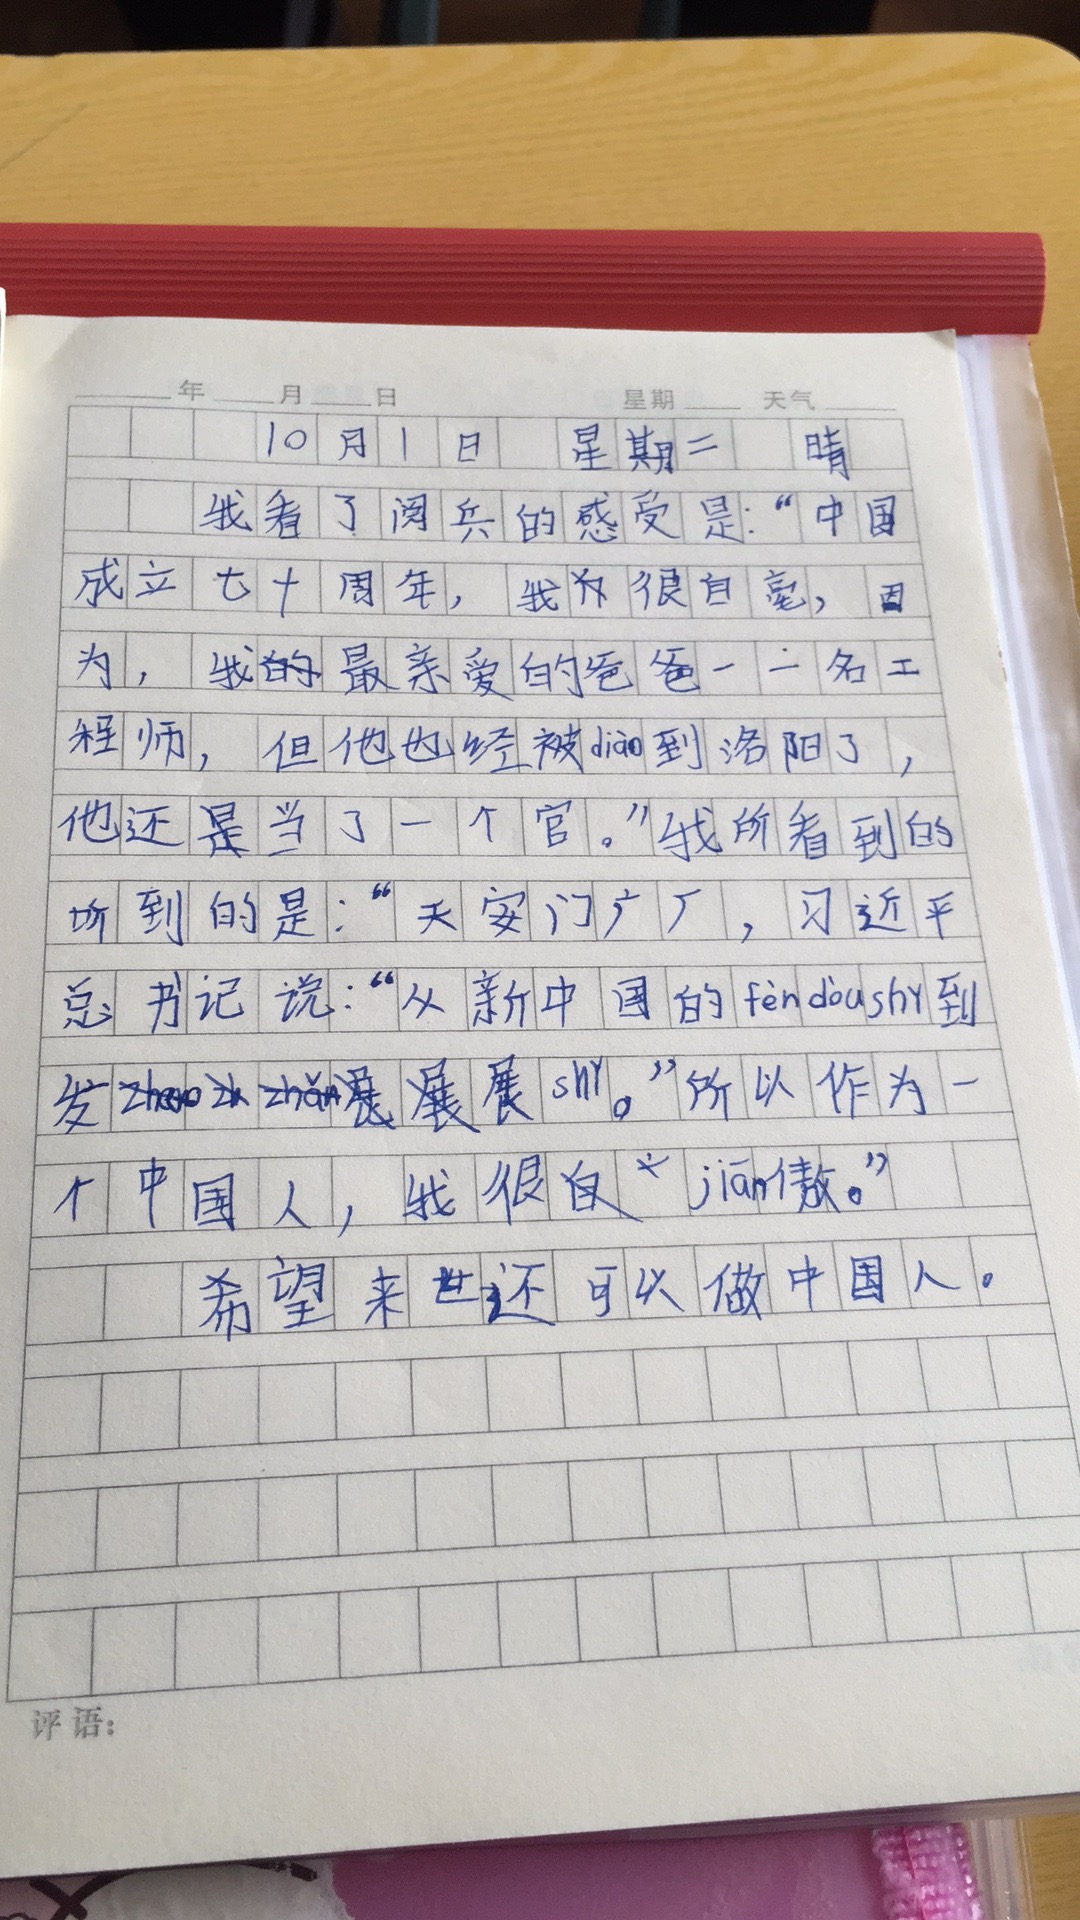 年 月 日 星期 天气
10月1日 星期二 晴
我看了阅兵的感受是：“中国
成立七十周年，我为很自豪，因
为，我的最亲爱的爸爸一一名工
程师，但他也经被diào到洛阳了，
他还是当了一个官。”我所看到的
听到的是：“天安门广厂，习近平
总书记说：“从新中国的fèndòushǐ到
发展展shǐ。”所以作为一
个中国人，我很自“jiān傲。”
希望来世还可以做中国人。
评语：